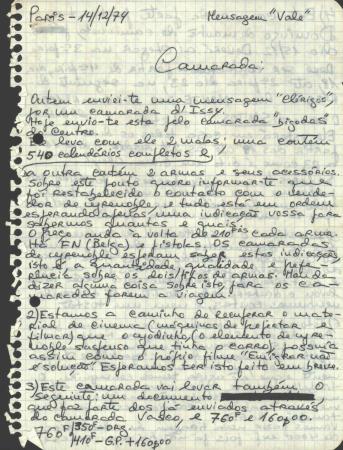 Paris - 14/12/74 Mensagem "Vale"
Camarada:
Ontem enviei-te uma mensagem "Clérigos",
por um camarada d'Issy.
Hoje envio-te esta pelo camarada "Bigodas"
do Centro.
leva com ele 2 malas; uma contém
540 calendários completos e,
a outra contém 2 armas e seus acessórios.
Sobre este ponto quero informar-te que
foi restabelecido o contacto com o vende-
dor de Grenoble, e tudo está em ordem
esperando apenas, uma indicação vossa para
sabermos quantas e quais.
O preço anda à volta de 210 cada arma.
Há FN (Belga) e pistolas. Os camaradas
de Grenoble esperam saber estas indicações,
isto é a quantidade, qualidade e prefe-
rência sobre os dois tipos de armas. Manda
dizer alguma coisa sobre isto, para os ca-
maradas farem a viagem.
2) Estamos a caminho de recuperar o mate-
rial de cinema (máquinas de projectar e
filmar) que o "judeu" (o elemento de Gre-
noble suspenso que tinha o carro), possuia
assim como o próprio filme "Emigrar não
é solução". Esperamos ter isto feito em breve.
3) Este camarada vai levar também o
seguinte: um documento
que faz parte dos já enviados através
do camarada Vasco, e 760F e 160$00.
760F /350F-ORG.
\410F-G.P. + 160$00